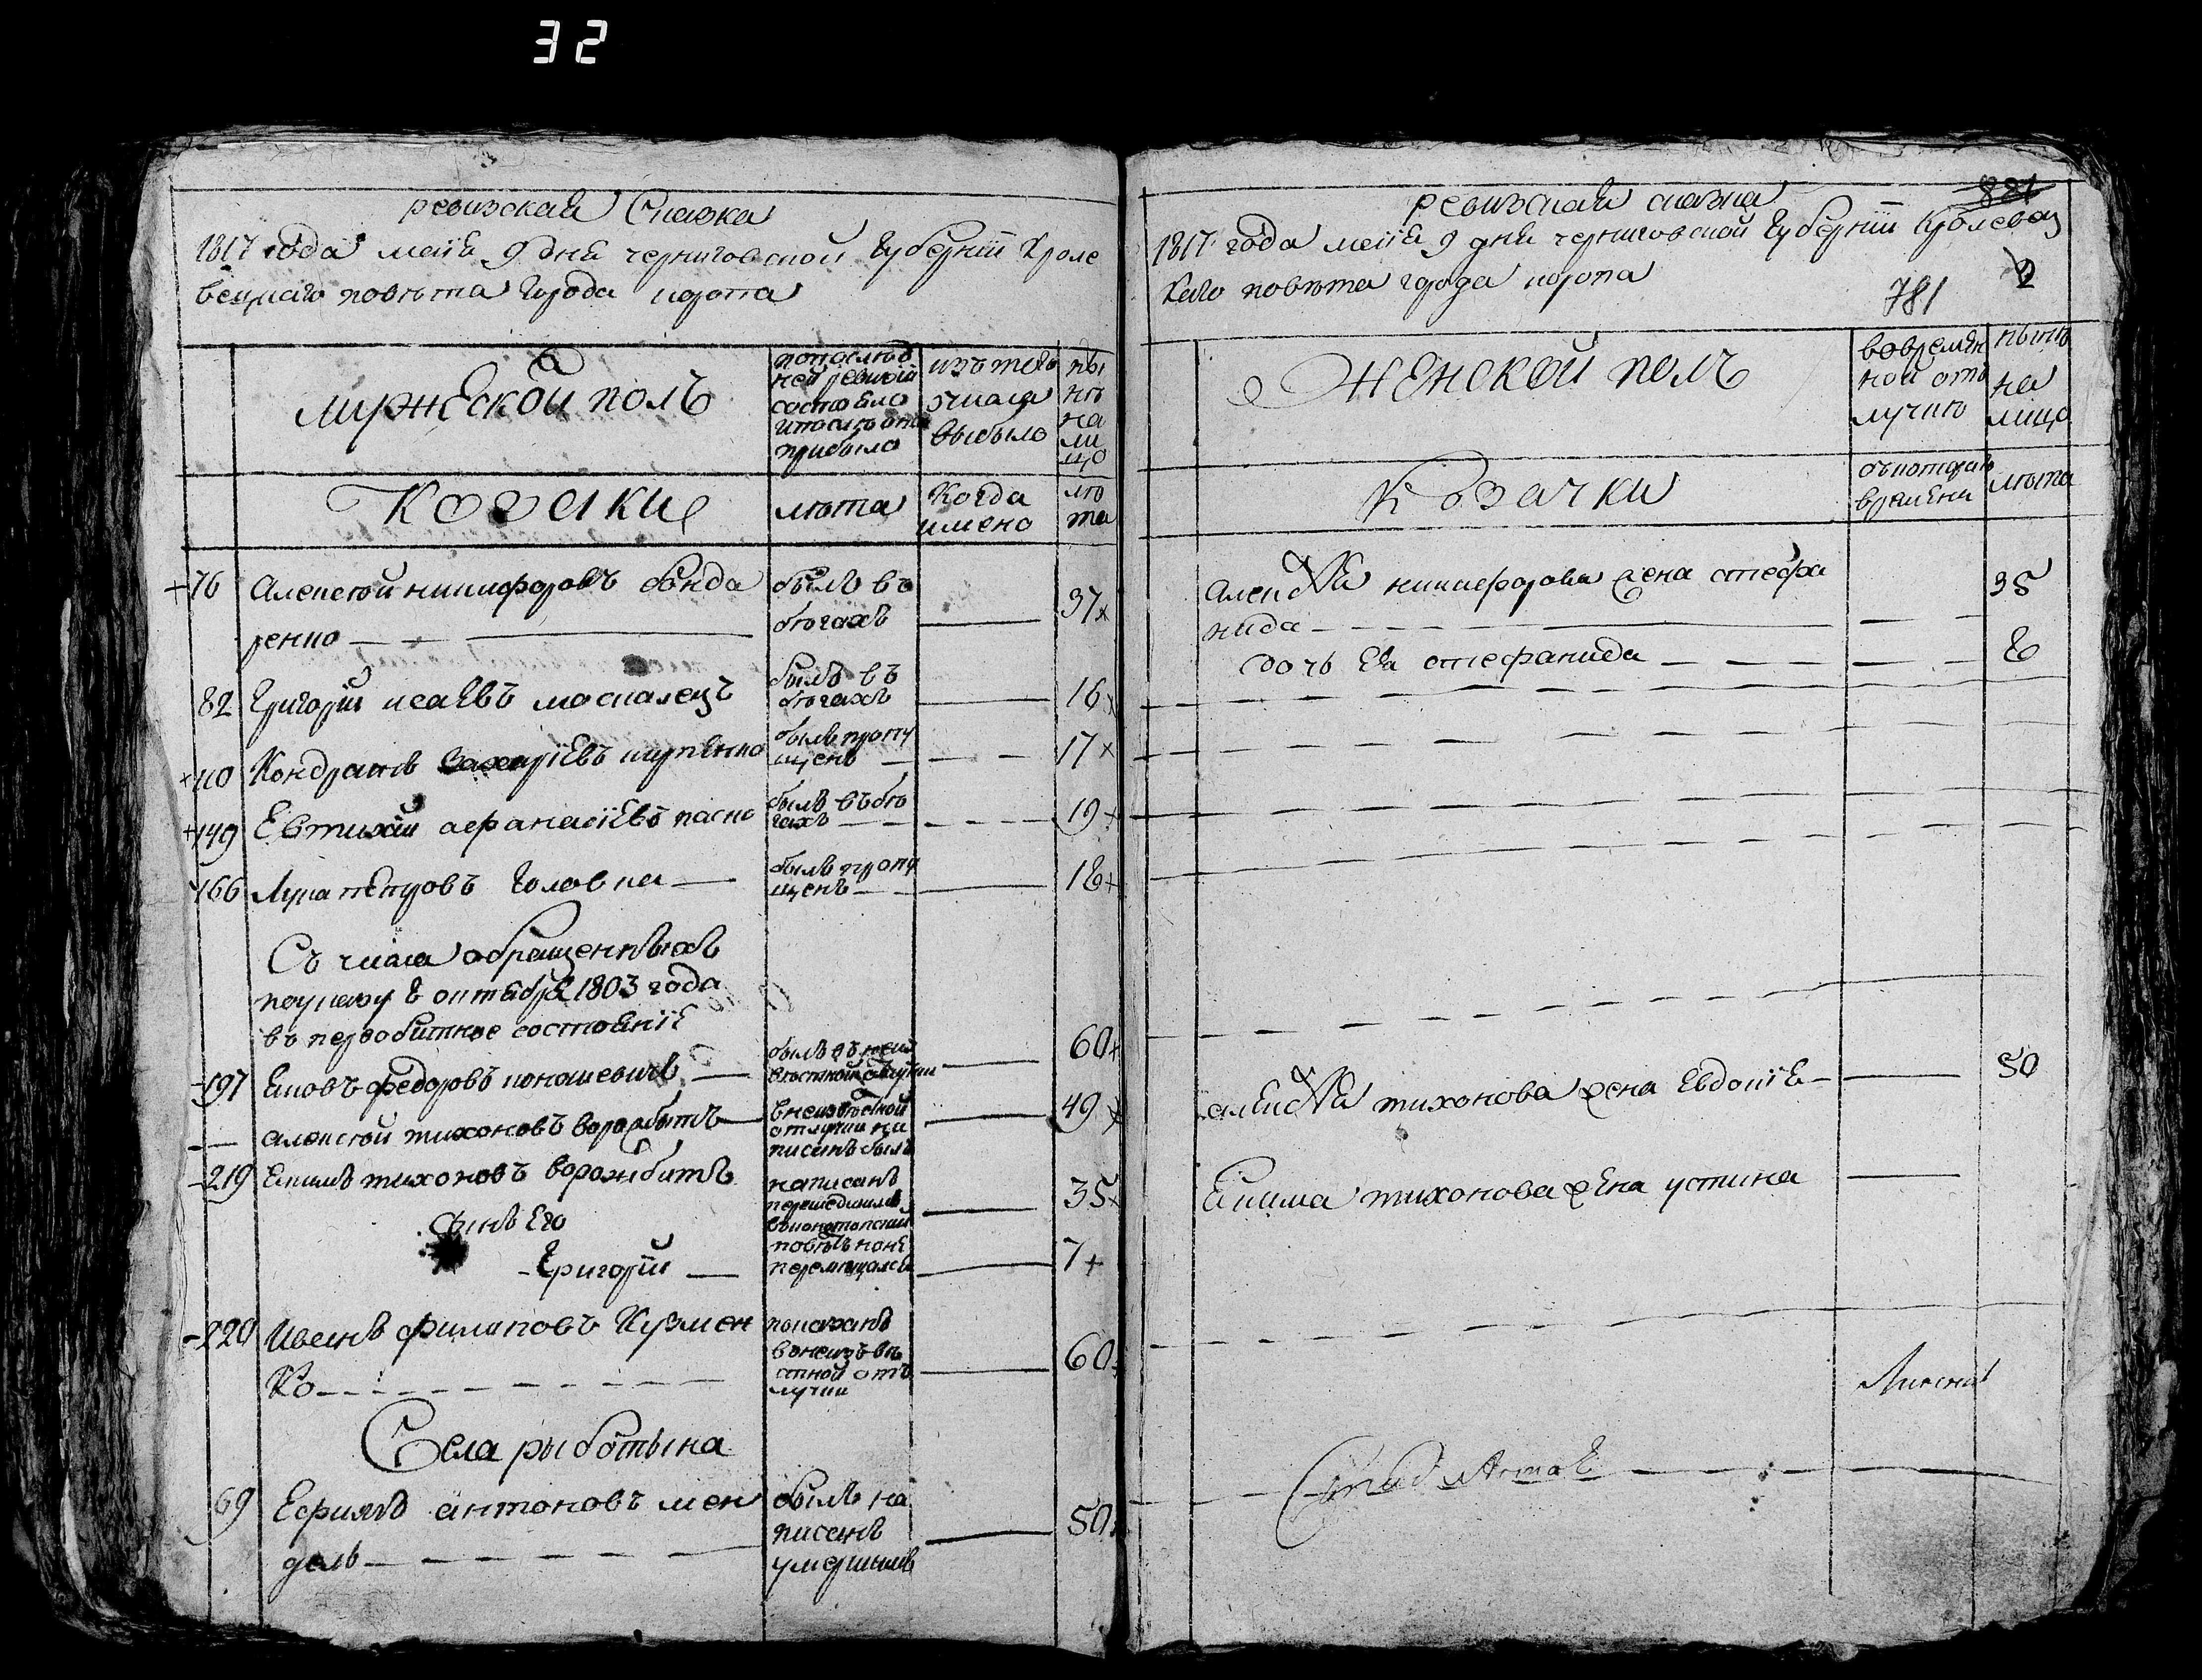 32
ревизская Сказка
1817 года маія 9 дня черниговской губерніи Кроле
вецкаго повѣта Города коропа
мужеской полъ
попослѣд
ней ревизіи
состояло
и послѣ оной
прибыло
изъ того
числа
выбыло
ны
нѣ
на
ли
цо
Козаки
лѣта
Когда
имено
лѣ
та
+76 Алексей никифоровъ бонда
ренко
былъ въ
бѣгахъ
37 х
82 Григорій исаевъ москалецъ
былъ въ
бѣгахъ
16 х
+110 Кондратъ захаріевъ карпенко
былъ пропу
щенъ
17 х
+149 Евтихій афанасіевъ паско
былъ въ бѣ
гахъ
19 х
166 Лука петровъ головка
былъ пропу
щенъ
18 +
Съ числа обращенныхъ
по указу 8 октября 1803 года
въ первобитное состояніе
197 Яковъ федоровъ конашевичъ
60 +
алексей тихоновъ ворожбитъ
в неизвѣстной
отлучки на
писанъ былъ
49 х
219 Екимъ тихоновъ ворожбитъ
написанъ
перешедшимъ
в конотопский
повѣтъ но не
перемещался
35 х
Сынъ Его
Григорій
7 +
220 Иванъ филиповъ Кузмен
ко
показанъ
в неизвѣ
стной от
лучки
60
Села рыботына
69 Ефимъ антоновъ мен
дель
былъ на
писанъ
умершимъ
50
ревизская сказка
881
1817 года маія 9 дня черниговской губерніи Кролевец
каго повѣта города коропа
781
2
Женской полъ
во времян
ной от
лучкѣ
нынѣ
на
лицо
Козачки
съ котораго
времени
лѣта
алексѣя никифорова жена стефа
нида
35
дочь Ея стефанида
8
алексѣя тихонова жена Евдокія
50
Екима тихонова жена устина